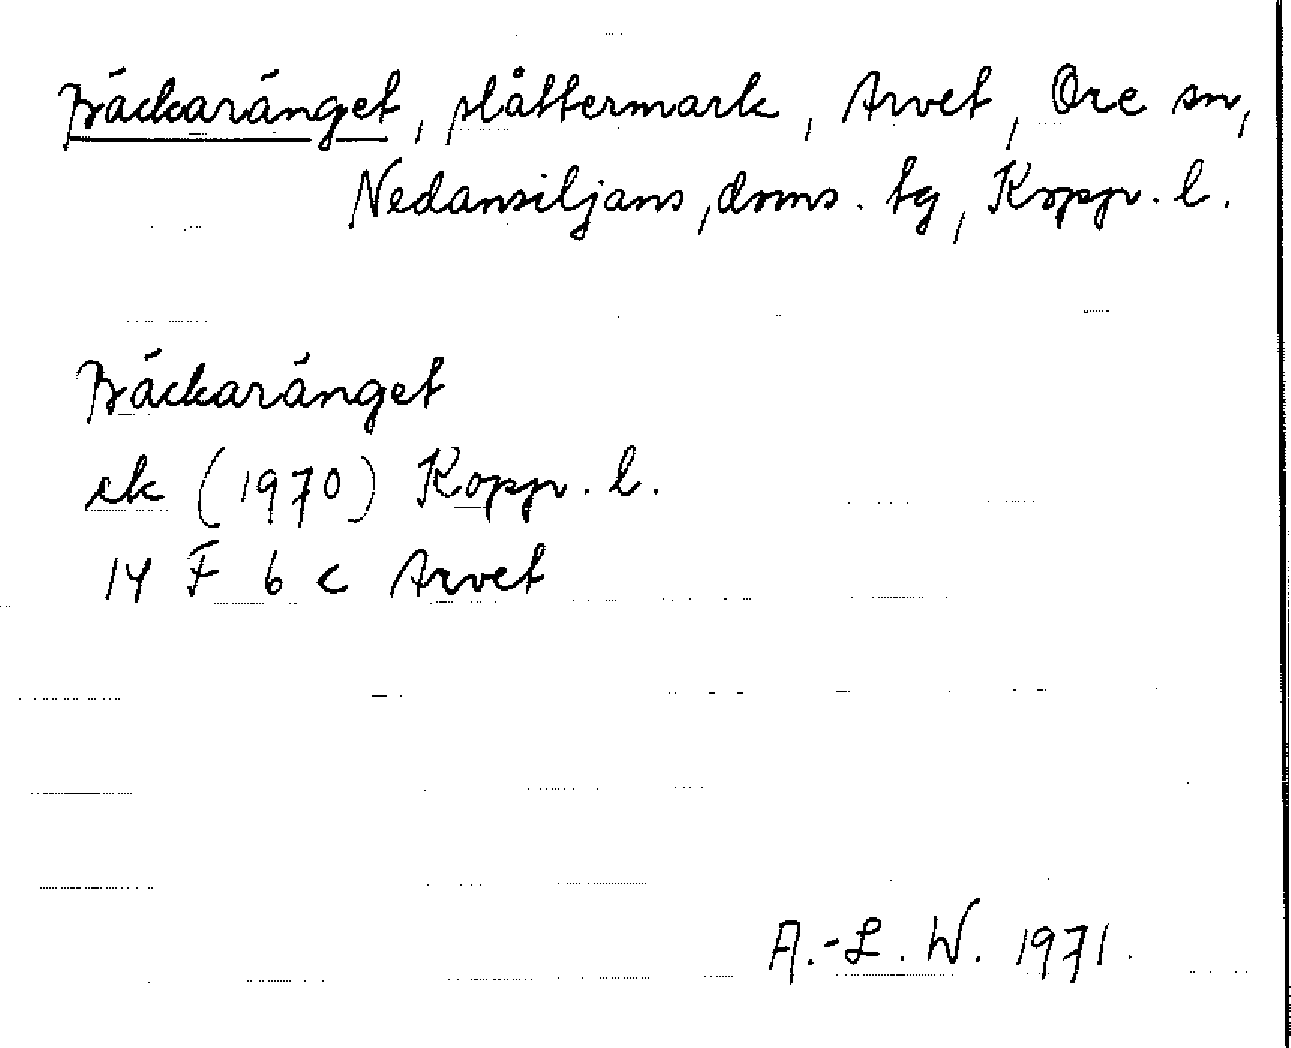 Bäckaränget, slåttermark, Arvet, Ore sn,
Nedansiljans doms. tg, Koppr. l.
Bäckaränget
ek (1970) Koppr. l.
14 F 6 c Arvet
A.-L. W. 1971.